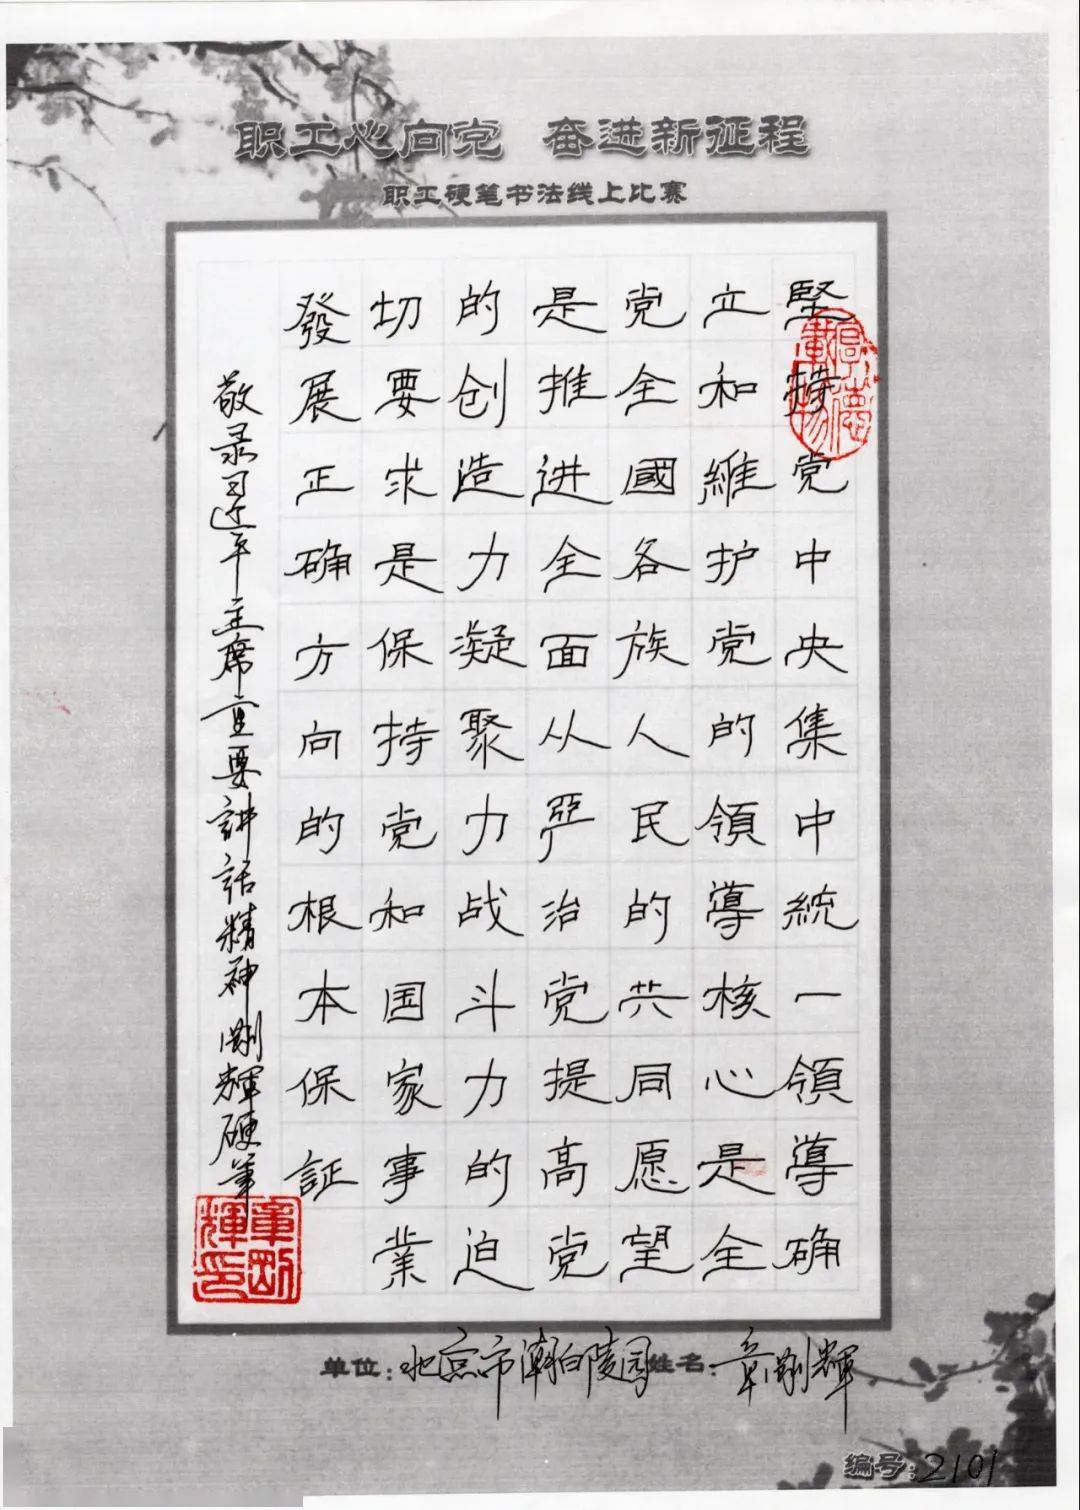 职工心向党 奋进新征程
职工硬笔书法线上比赛
堅持党中央集中統一領導确
立和維护党的領導核心是全
党全國各族人民的共同愿望
是推进全面从严治党提高党
的创造力凝聚力战斗力的迫
切要求是保持党和国家事業
發展正确方向的根本保証
敬录习近平主席重要講話精神 剛輝硬筆
厚德載物
章剛輝印
单位：北京市潮白陵园 姓名：章剛輝
编号：2101